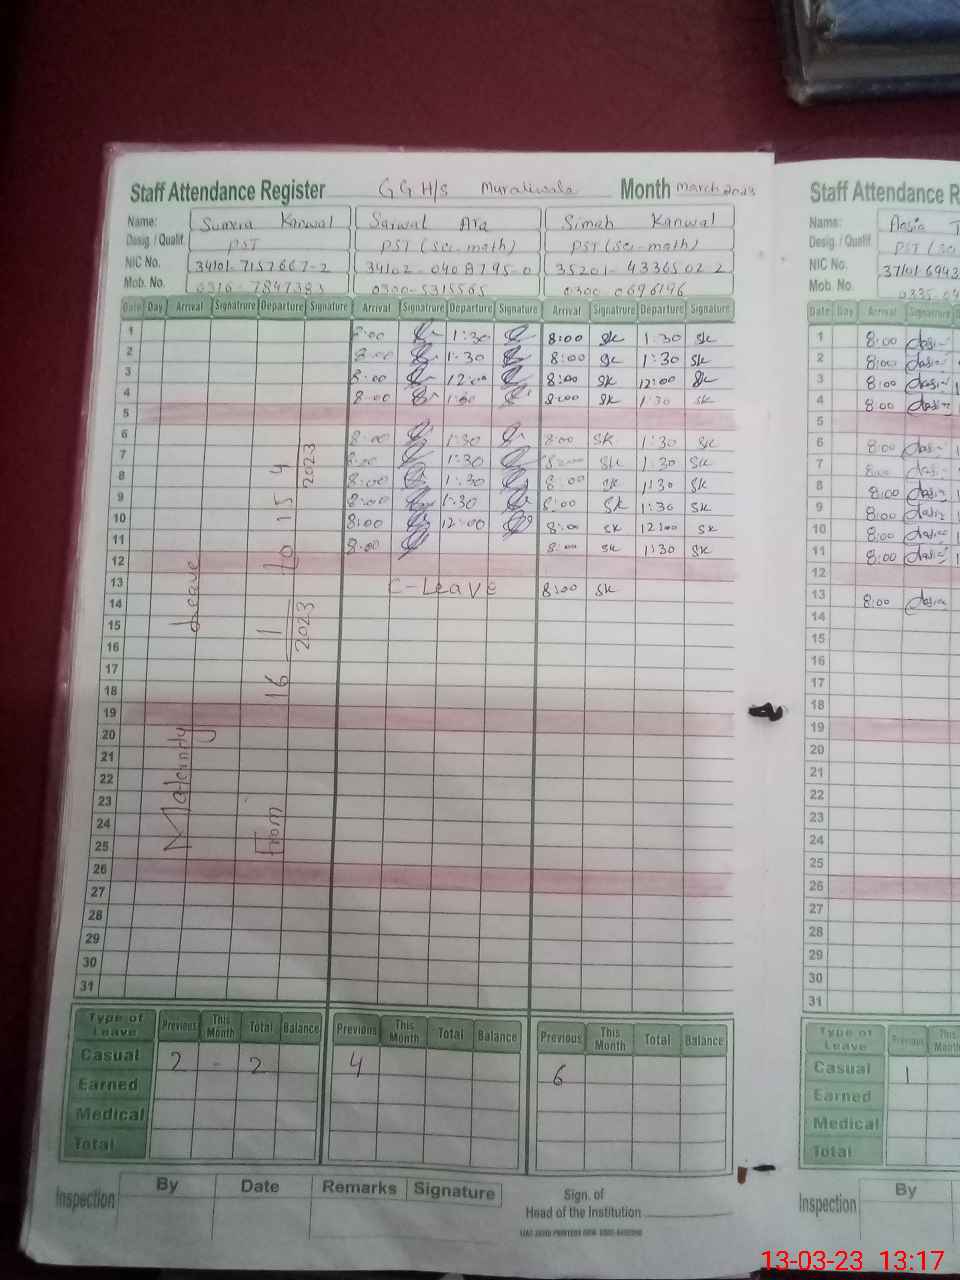 Staff Attendance Register GGH/S Muraliwala Month March 2023
Name: Sumera Kanwal Saiwal Ara Simeh Kanwal
Desig. / Qualif. PST PST (Sci-math) PST (Sci-math)
NIC No. 34101-7157667-2 34102-0408795-0 35201-4336502 2
Mob. No. 0316-7847383 0300-5315565 0300 0696196
Date Day Arrival Signature Departure Signature Arrival Signature Departure Signature Arrival Signature Departure Signature
1 8:00 1:30 8:00 SK 1:30 SK
2 8:00 1:30 8:00 SK 1:30 SK
3 8:00 12:00 8:00 SK 12:00 SK
4 8:00 1:30 8:00 SK 1:30 SK
5
6 8:00 1:30 8:00 SK 1:30 SK
7 8:00 1:30 8:00 SK 1:30 SK
8 8:00 1:30 8:00 SK 1:30 SK
9 8:00 1:30 8:00 SK 1:30 SK
10 8:00 12:00 8:00 SK 12:00 SK
11 8:00 8:00 SK 1:30 SK
12
13 C-Leave 8:00 SK
14
15
16
17
18
19
20
21
22
23
24
25
26
27
28
29
30
31
Maternity Leave
From 16 1/2023 to 15 4/2023
Type of Leave Previous This Month Total Balance Previous This Month Total Balance Previous This Month Total Balance
Casual 2 - 2 4 6
Earned
Medical
Total
Inspection By Date Remarks Signature
Sign. of
Head of the Institution
Staff Attendance R
Name: Aasia
Desig. / Qualif PST (Sci
NIC No. 37101 6943
Mob. No. 0335
Date Day Arrival Signature
1 8:00 Aasia
2 8:00 Aasia
3 8:00 Aasia
4 8:00 Aasia
5
6 8:00 Aasia
7 8:00 Aasia
8 8:00 Aasia
9 8:00 Aasia
10 8:00 Aasia
11 8:00 Aasia
12
13 8:00 Aasia
14
15
16
17
18
19
20
21
22
23
24
25
26
27
28
29
30
31
Type of Leave Previous This Month
Casual 1
Earned
Medical
Total
Inspection By
13-03-23 13:17